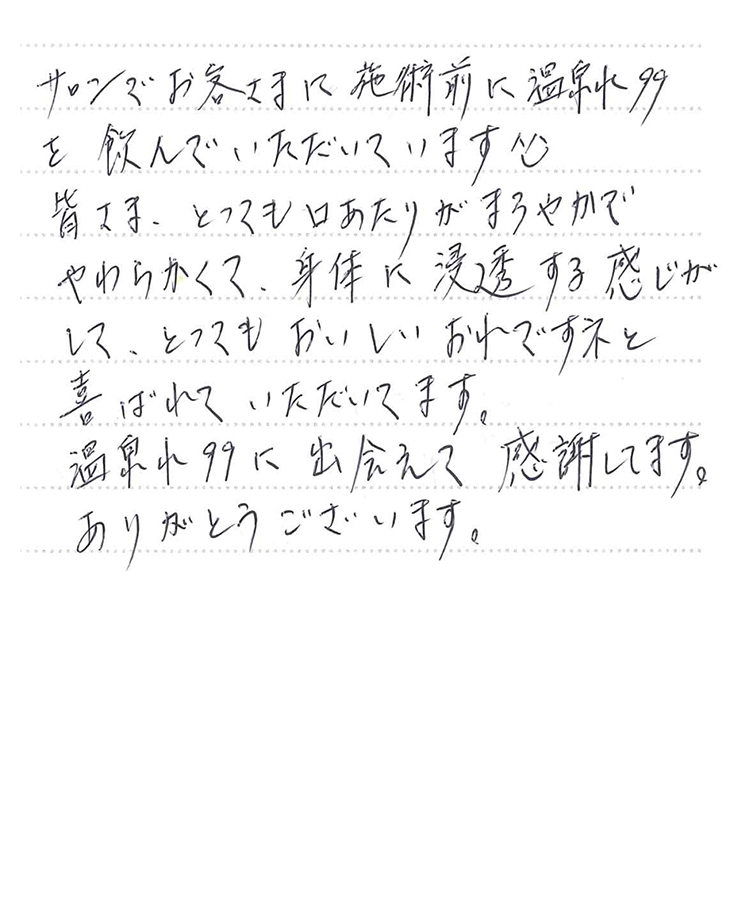 サロンでお客さまに施術前に温泉水99
を飲んでいただいています
皆さま、とっても口あたりがまろやかで
やわらかくて、身体に浸透する感じが
して、とってもおいしいお水ですネと
喜ばれていただいてます。
温泉水99に出会えて感謝してます。
ありがとうございます。